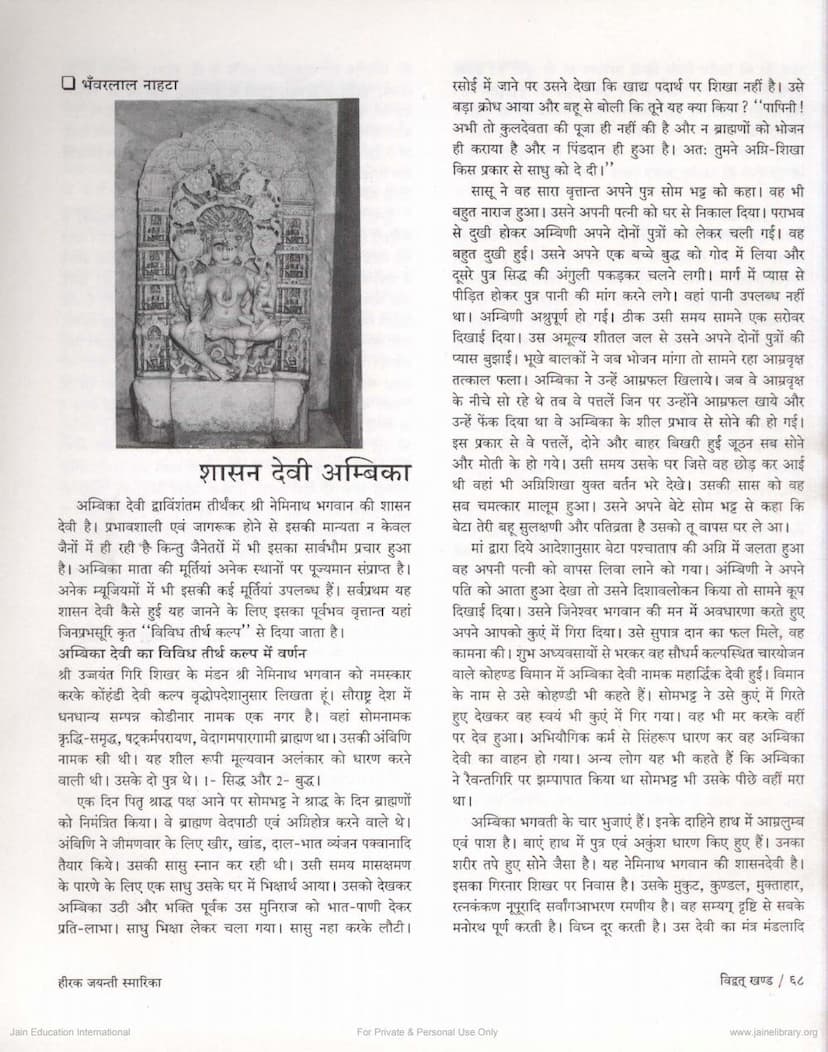 ❑ भँवरलाल नाहटा
शासन देवी अम्बिका
अम्बिका देवी द्वाविंशंतम तीर्थंकर श्री नेमिनाथ भगवान की शासन
देवी है। प्रभावशाली एवं जागरूक होने से इसकी मान्यता न केवल
जैनों में ही रही है किन्तु जैनेतरों में भी इसका सार्वभौम प्रचार हुआ
है। अम्बिका माता की मूर्तियां अनेक स्थानों पर पूज्यमान संप्राप्त है।
अनेक म्यूजियमों में भी इसकी कई मूर्तियां उपलब्ध हैं। सर्वप्रथम यह
शासन देवी कैसे हुई यह जानने के लिए इसका पूर्वभव वृत्तान्त यहां
जिनप्रभसूरि कृत ‘‘विविध तीर्थ कल्प’’ से दिया जाता है।
अम्बिका देवी का विविध तीर्थ कल्प में वर्णन
श्री उज्जयंत गिरि शिखर के मंडन श्री नेमिनाथ भगवान को नमस्कार
करके कोंहंडी देवी कल्प वृद्धोपदेशानुसार लिखता हूं। सौराष्ट्र देश में
धनधान्य सम्पन्न कोडीनार नामक एक नगर है। वहां सोमनामक
ऋद्धि-समृद्ध, षट्कर्मपरायण, वेदागमपारगामी ब्राह्मण था। उसकी अंबिणि
नामक स्त्री थी। यह शील रूपी मूल्यवान अलंकार को धारण करने
वाली थी। उसके दो पुत्र थे। 1- सिद्ध और 2- बुद्ध।
एक दिन पितृ श्राद्ध पक्ष आने पर सोमभट्ट ने श्राद्ध के दिन ब्राह्मणों
को निमंत्रित किया। वे ब्राह्मण वेदपाठी एवं अग्निहोत्र करने वाले थे।
अंबिणि ने जीमणवार के लिए खीर, खांड, दाल-भात व्यंजन पक्वानादि
तैयार किये। उसकी सासु स्नान कर रही थी। उसी समय मासक्षमण
के पारणे के लिए एक साधु उसके घर में भिक्षार्थ आया। उसको देखकर
अम्बिका उठी और भक्ति पूर्वक उस मुनिराज को भात-पाणी देकर
प्रति-लाभा। साधु भिक्षा लेकर चला गया। सासु नहा करके लौटी।
रसोई में जाने पर उसने देखा कि खाद्य पदार्थ पर शिखा नहीं है। उसे
बड़ा क्रोध आया और बहू से बोली कि तूने यह क्या किया? ‘‘पापिनी!
अभी तो कुलदेवता की पूजा ही नहीं की है और न ब्राह्मणों को भोजन
ही कराया है और न पिंडदान ही हुआ है। अतः तुमने अग्नि-शिखा
किस प्रकार से साधु को दे दी।’’
सासू ने वह सारा वृत्तान्त अपने पुत्र सोम भट्ट को कहा। वह भी
बहुत नाराज हुआ। उसने अपनी पत्नी को घर से निकाल दिया। पराभव
से दुखी होकर अम्बिणी अपने दोनों पुत्रों को लेकर चली गई। वह
बहुत दुखी हुई। उसने अपने एक बच्चे बुद्ध को गोद में लिया और
दूसरे पुत्र सिद्ध की अंगुली पकड़कर चलने लगी। मार्ग में प्यास से
पीड़ित होकर पुत्र पानी की मांग करने लगे। वहां पानी उपलब्ध नहीं
था। अम्बिणी अश्रुपूर्ण हो गई। ठीक उसी समय सामने एक सरोवर
दिखाई दिया। उस अमूल्य शीतल जल से उसने अपने दोनों पुत्रों की
प्यास बुझाई। भूखे बालकों ने जब भोजन मांगा तो सामने रहा आम्रवृक्ष
तत्काल फला। अम्बिका ने उन्हें आम्रफल खिलाये। जब वे आम्रवृक्ष
के नीचे सो रहे थे तब वे पत्तलें जिन पर उन्होंने आम्रफल खाये और
उन्हें फेंक दिया था वे अम्बिका के शील प्रभाव से सोने की हो गई।
इस प्रकार से वे पत्तलें, दोने और बाहर बिखरी हुई जूठन सब सोने
और मोती के हो गये। उसी समय उसके घर जिसे वह छोड़ कर आई
थी वहां भी अग्निशिखा युक्त बर्तन भरे देखे। उसकी सास को वह
सब चमत्कार मालूम हुआ। उसने अपने बेटे सोम भट्ट से कहा कि
बेटा तेरी बहू सुलक्षणी और पतिव्रता है उसको तू वापस घर ले आ।
मां द्वारा दिये आदेशानुसार बेटा पश्चाताप की अग्नि में जलता हुआ
वह अपनी पत्नी को वापस लिवा लाने को गया। अंम्बिणी ने अपने
पति को आता हुआ देखा तो उसने दिशावलोकन किया तो सामने कूप
दिखाई दिया। उसने जिनेश्वर भगवान की मन में अवधारणा करते हुए
अपने आपको कुएं में गिरा दिया। उसे सुपात्र दान का फल मिले, वह
कामना की। शुभ अध्यवसायों से भरकर वह सौधर्म कल्पस्थित चारयोजन
वाले कोहण्ड विमान में अम्बिका देवी नामक महार्द्धिक देवी हुई। विमान
के नाम से उसे कोहण्डी भी कहते हैं। सोमभट्ट ने उसे कुएं में गिरते
हुए देखकर वह स्वयं भी कुएं में गिर गया। वह भी मर करके वहीं
पर देव हुआ। अभियौगिक कर्म से सिंहरूप धारण कर वह अम्बिका
देवी का वाहन हो गया। अन्य लोग यह भी कहते हैं कि अम्बिका
ने रैवन्तगिरि पर झम्पापात किया था सोमभट्ट भी उसके पीछे वहीं मरा
था।
अम्बिका भगवती के चार भुजाएं हैं। इनके दाहिने हाथ में आम्रलुम्ब
एवं पाश है। बाएं हाथ में पुत्र एवं अकुंश धारण किए हुए हैं। उनका
शरीर तपे हुए सोने जैसा है। यह नेमिनाथ भगवान की शासनदेवी है।
इसका गिरनार शिखर पर निवास है। उसके मुकुट, कुण्डल, मुक्ताहार,
रत्नकंकण नूपूरादि सर्वांगआभरण रमणीय है। वह सम्यग् दृष्टि से सबके
मनोरथ पूर्ण करती है। विघ्न दूर करती है। उस देवी का मंत्र मंडलादि
हीरक जयन्ती स्मारिका
विद्वत् खण्ड / ६८
Jain Education International
For Private & Personal Use Only
www.jainelibrary.org